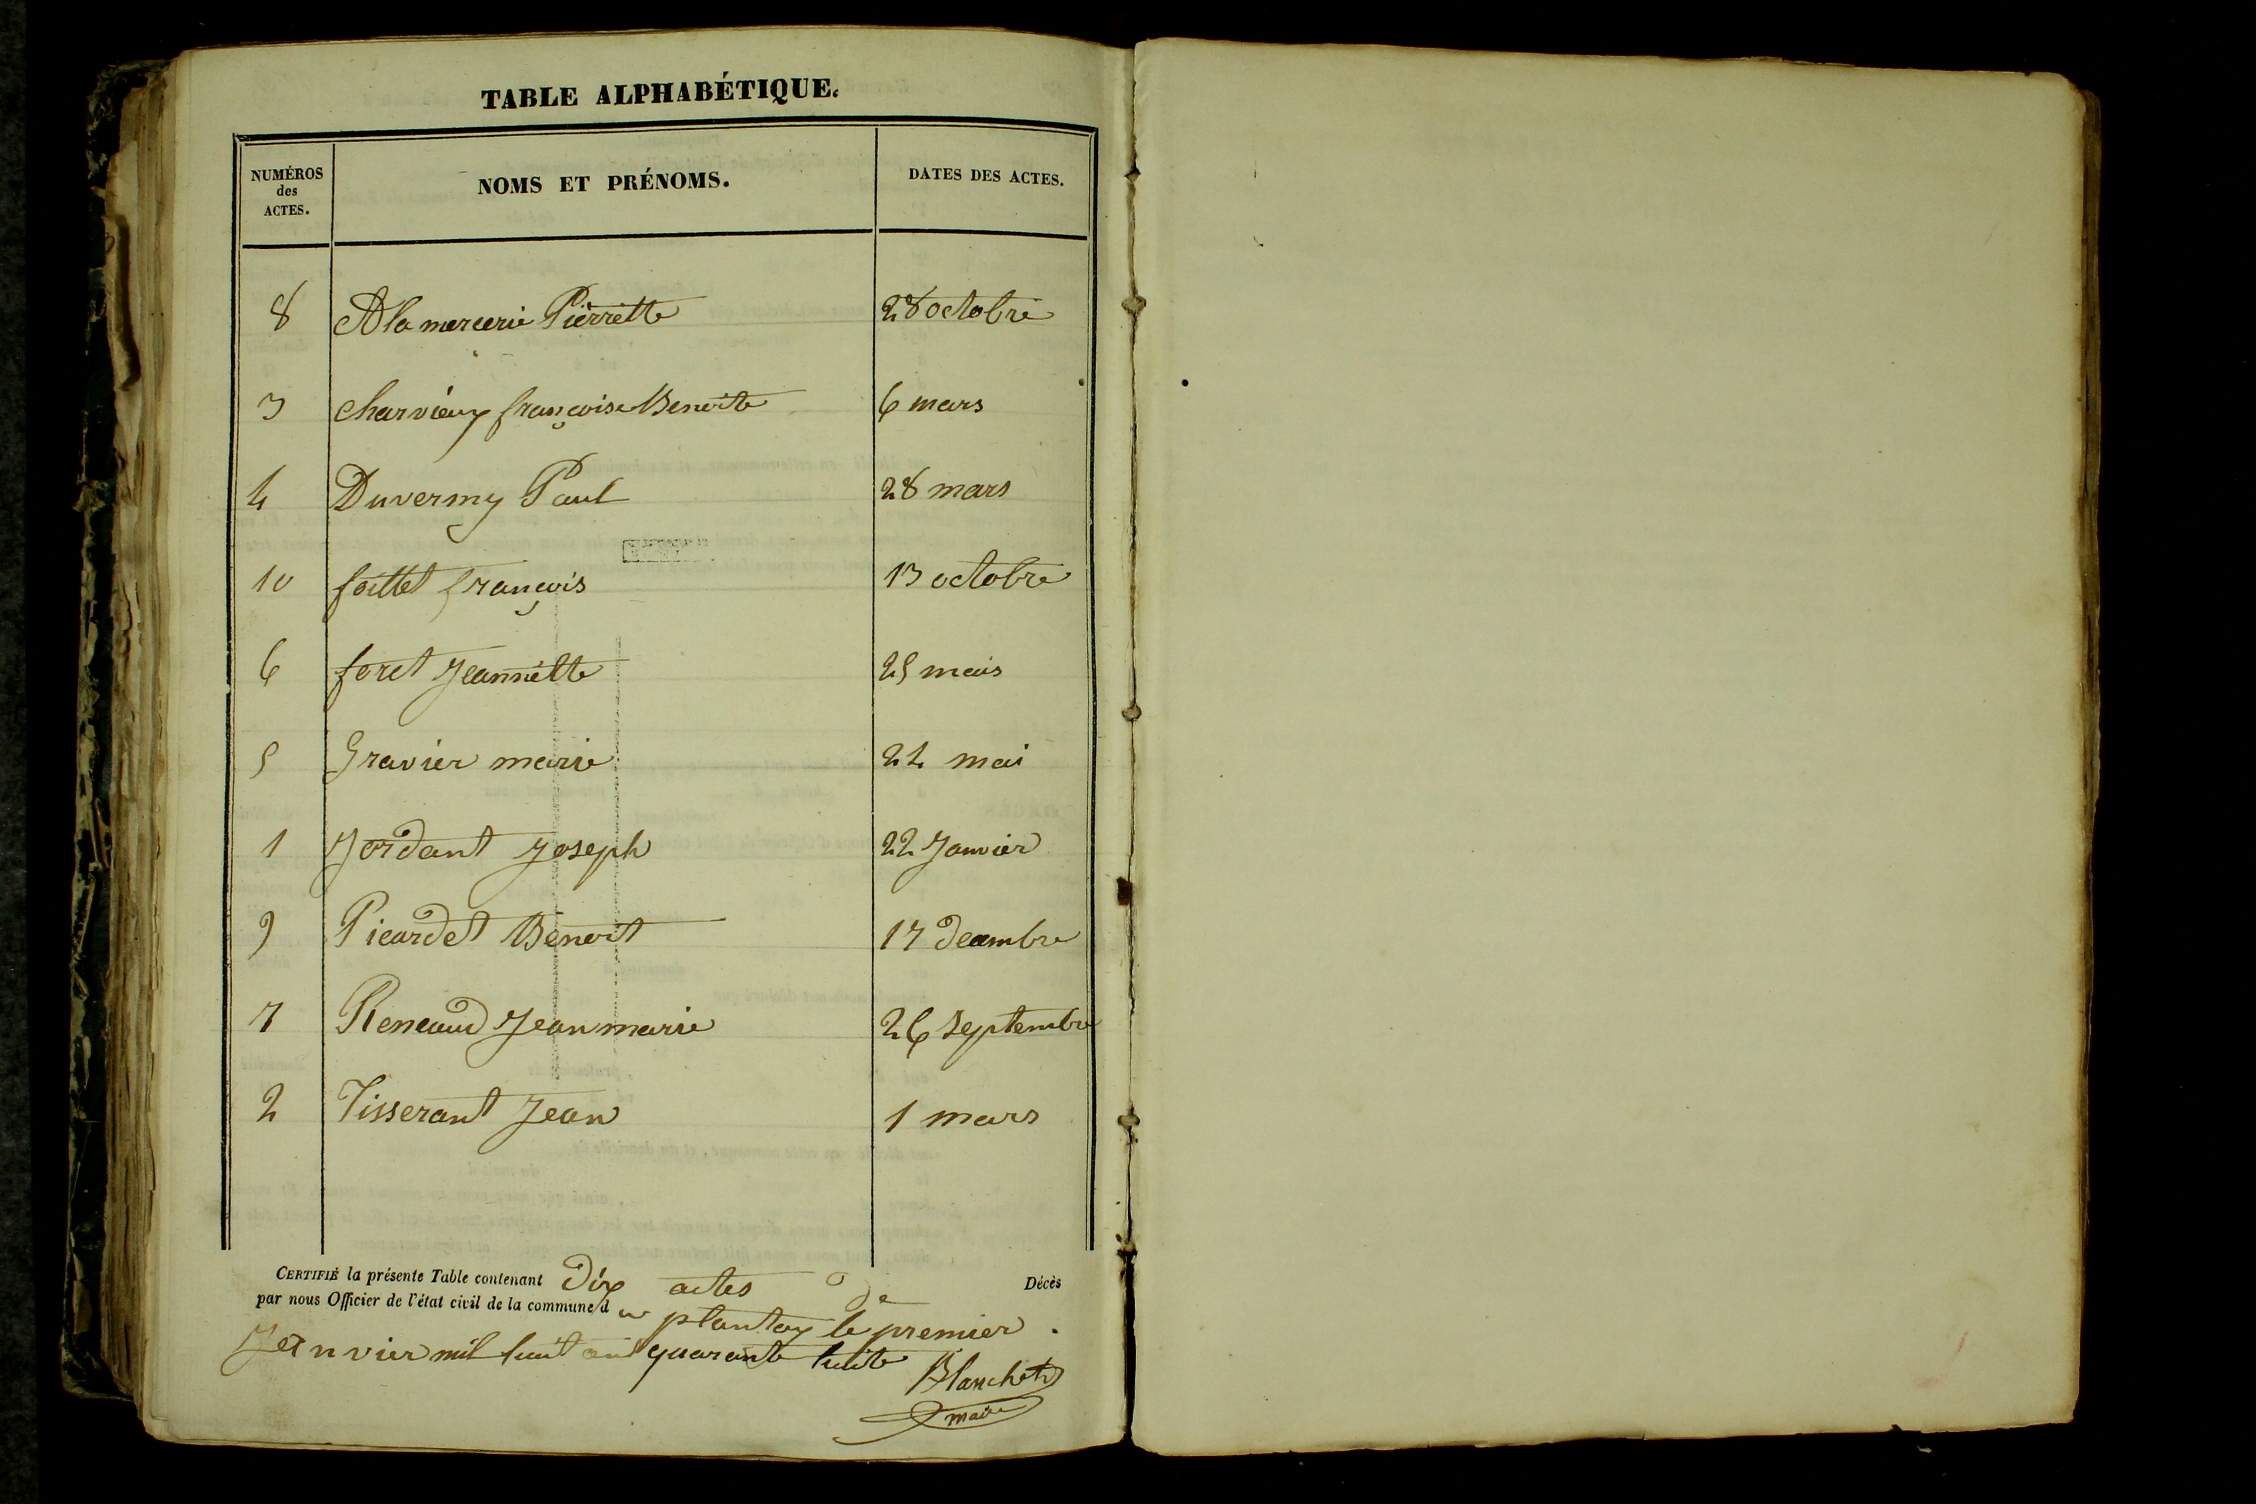 TABLE ALPHABÉTIQUE.
NUMÉROS des ACTES. NOMS ET PRÉNOMS. DATES DES ACTES.
8 Alamercerie Pierrette 28 octobre
3 charvieux françoise Benoite 6 mars
4 Duverny Paul 28 mars
10 foillet françois 13 octobre
6 foret Jeannette 25 mais
5 Gravier marie 24 mai
1 Jordant Joseph 22 Janvier
9 Picardet Benoit 17 decembre
7 Renaud Jean marie 26 septembre
2 Tisserant Jean 1 mars
CERTIFIÉ la présente Table contenant Dix actes de Décès
par nous Officier de l'état civil de la commune d u plantay le premier
Janvier mil huit cent quarante huite
Blanchet
maire